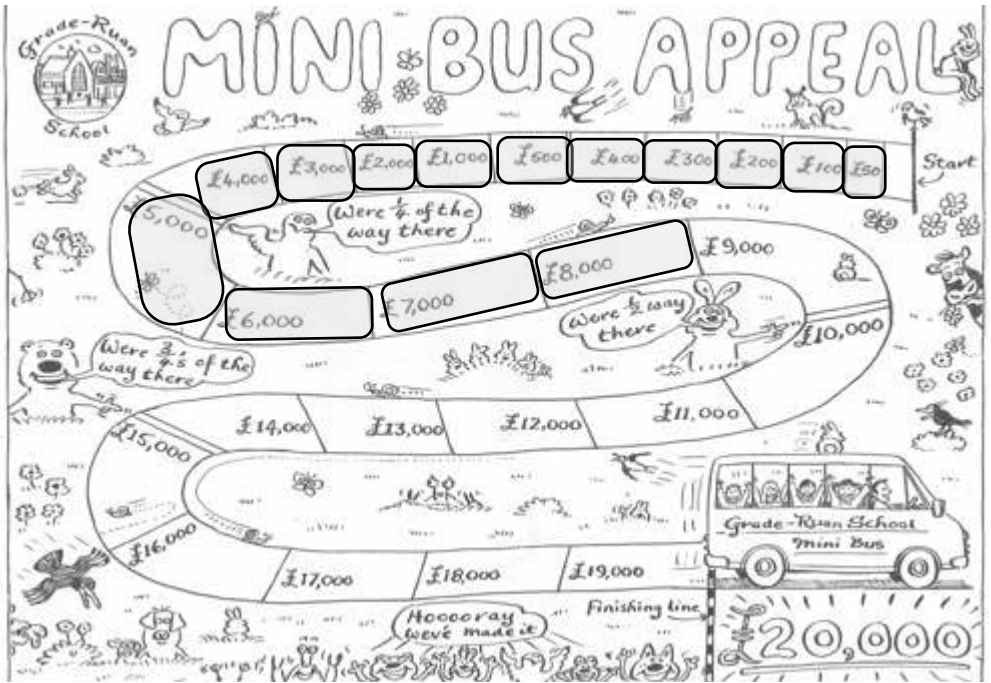 Grade-Ruan
School
MINI BUS APPEAL
Start
£50
£100
£200
£300
£400
£500
£1,000
£2,000
£3,000
£4,000
5,000
Were ¼ of the
way there
£6,000
£7,000
£8,000
£9,000
Were ½ way
there
£10,000
£11,000
£12,000
£13,000
£14,000
Were ¾'s of the
way there
£15,000
£16,000
£17,000
£18,000
£19,000
Grade-Ruan School
Mini Bus
Finishing line
Hooooray
weve made it
£20,000